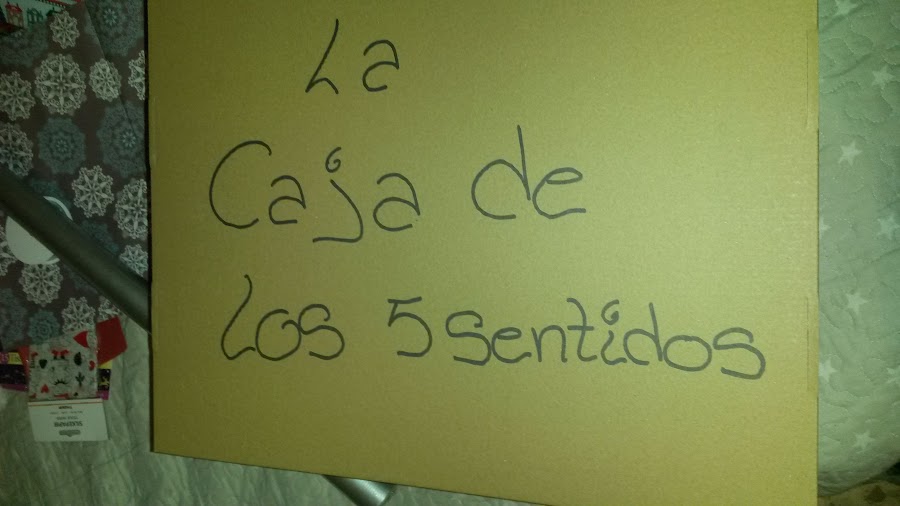 La
Caja de
los 5 sentidos